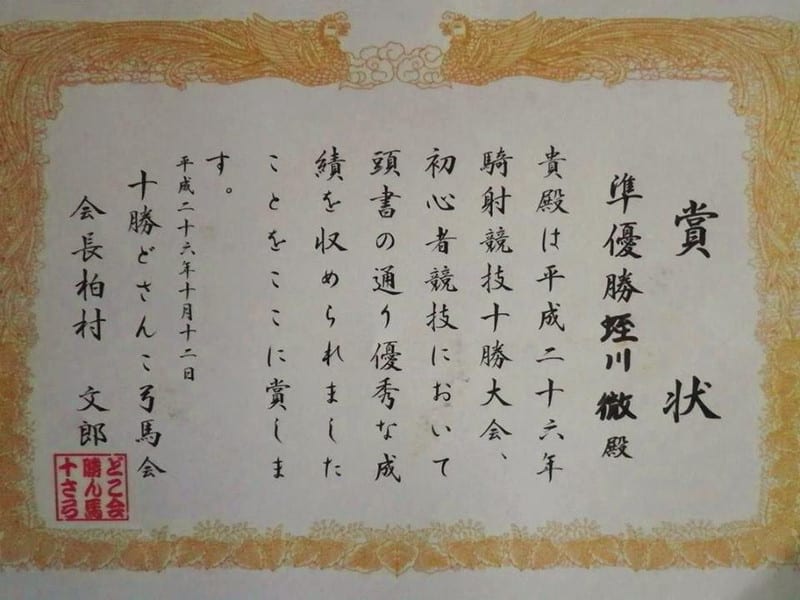 賞状
準優勝 蛭川 微 殿
貴殿は平成二十六年
騎射競技十勝大会、
初心者競技において
頭書の通り優秀な成
績を収められました
ことをここに賞しま
す。
平成二十六年十月十二日
十勝どさんこ弓馬会
会長 柏村 文郎
十勝どさんこ弓馬会